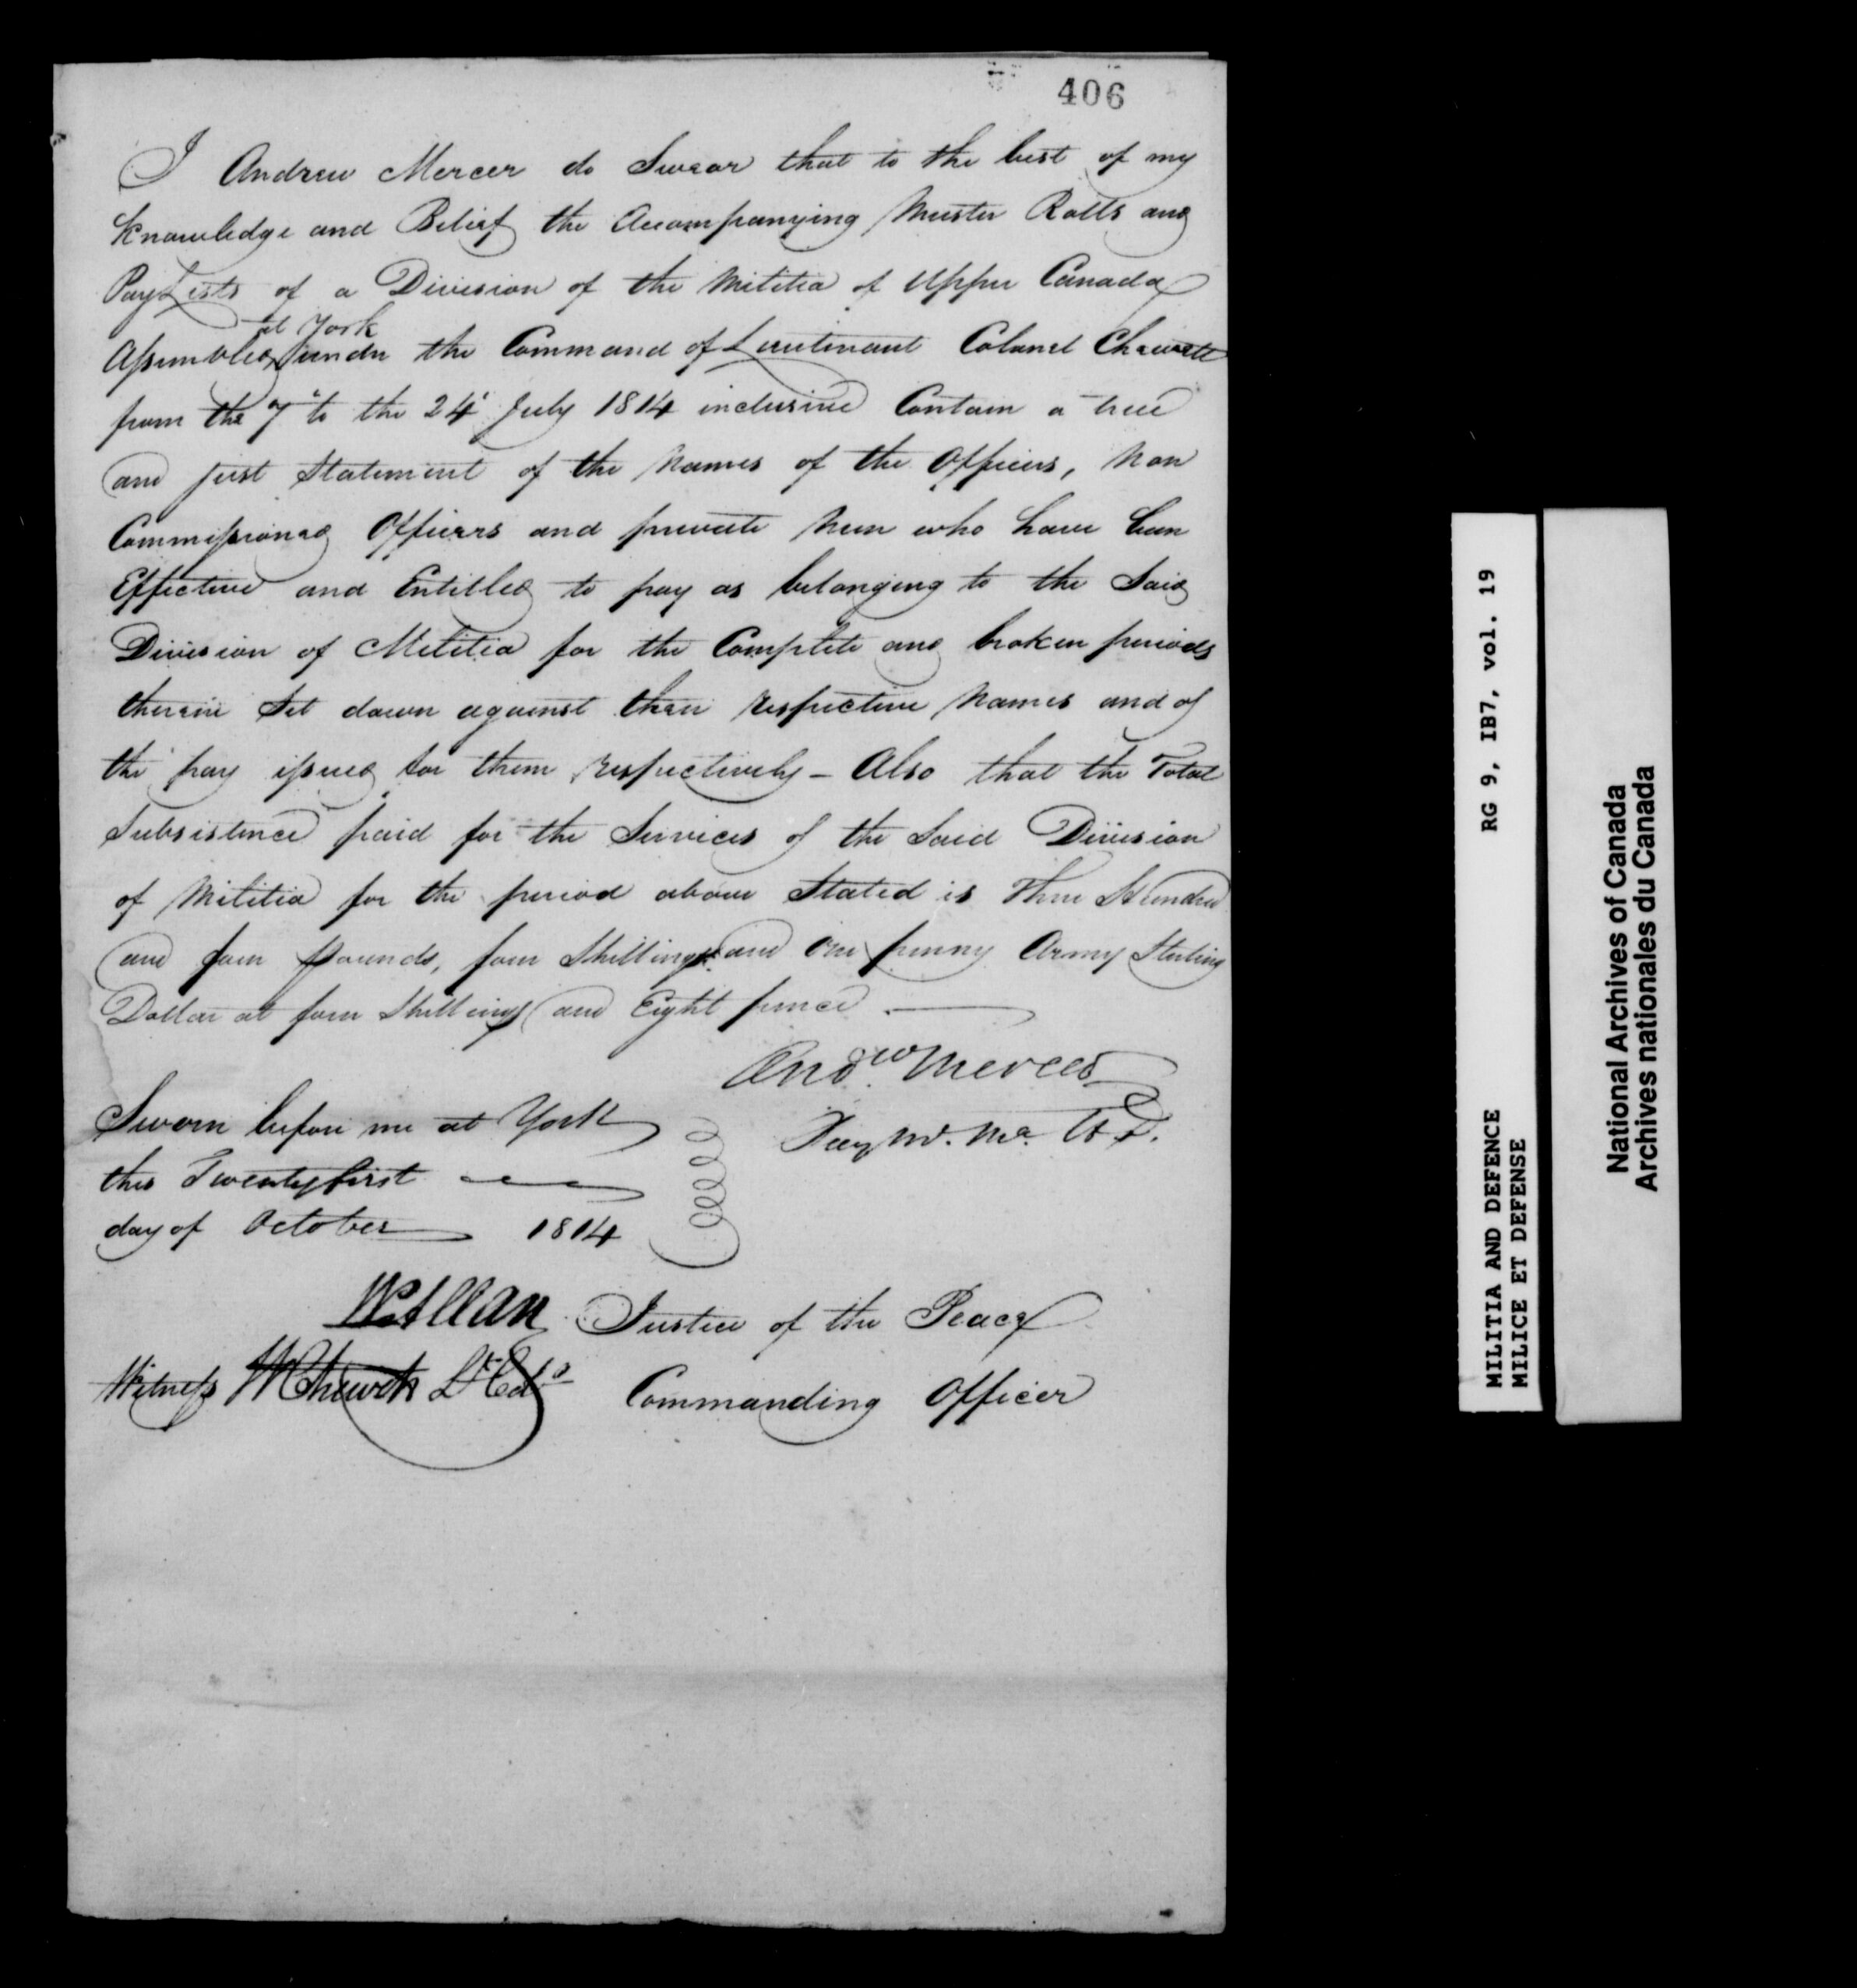 406
I Andrew Mercer do Swear that to the best of my
Knowledge and Belief the Accompanying Muster Rolls and
PayLists of a Division of the Militia of Upper Canada
at York
Assembled under the Command of Lieutenant Colonel Chewett
from the 7 to the 24 July 1814 inclusive Contain a true
and just Statement of the Names of the Officers, Non
Commissioned Officers and private Men who have been
Effective and Entitled to pay as belonging to the Said
Division of Militia for the Complete and broken periods
therein Set down against their respective Names and of
the pay issued for them respectively - Also that the Total
Subsistence paid for the Services of the Said Division
of Militia for the period above Stated is Three Hundred
and four pounds, four Shillings and One penny Army Sterling
Dollar at four Shillings and Eight pence.
Andw Mercer
Paym. Ma. H. D.
Sworn before me at York
this Twentyfirst
day of October 1814
W Allan Justice of the Peace
Witness W Chewett Lt Col Commanding Officer
MILITIA AND DEFENCE RG 9, IB7, vol. 19
MILICE ET DEFENSE
National Archives of Canada
Archives nationales du Canada